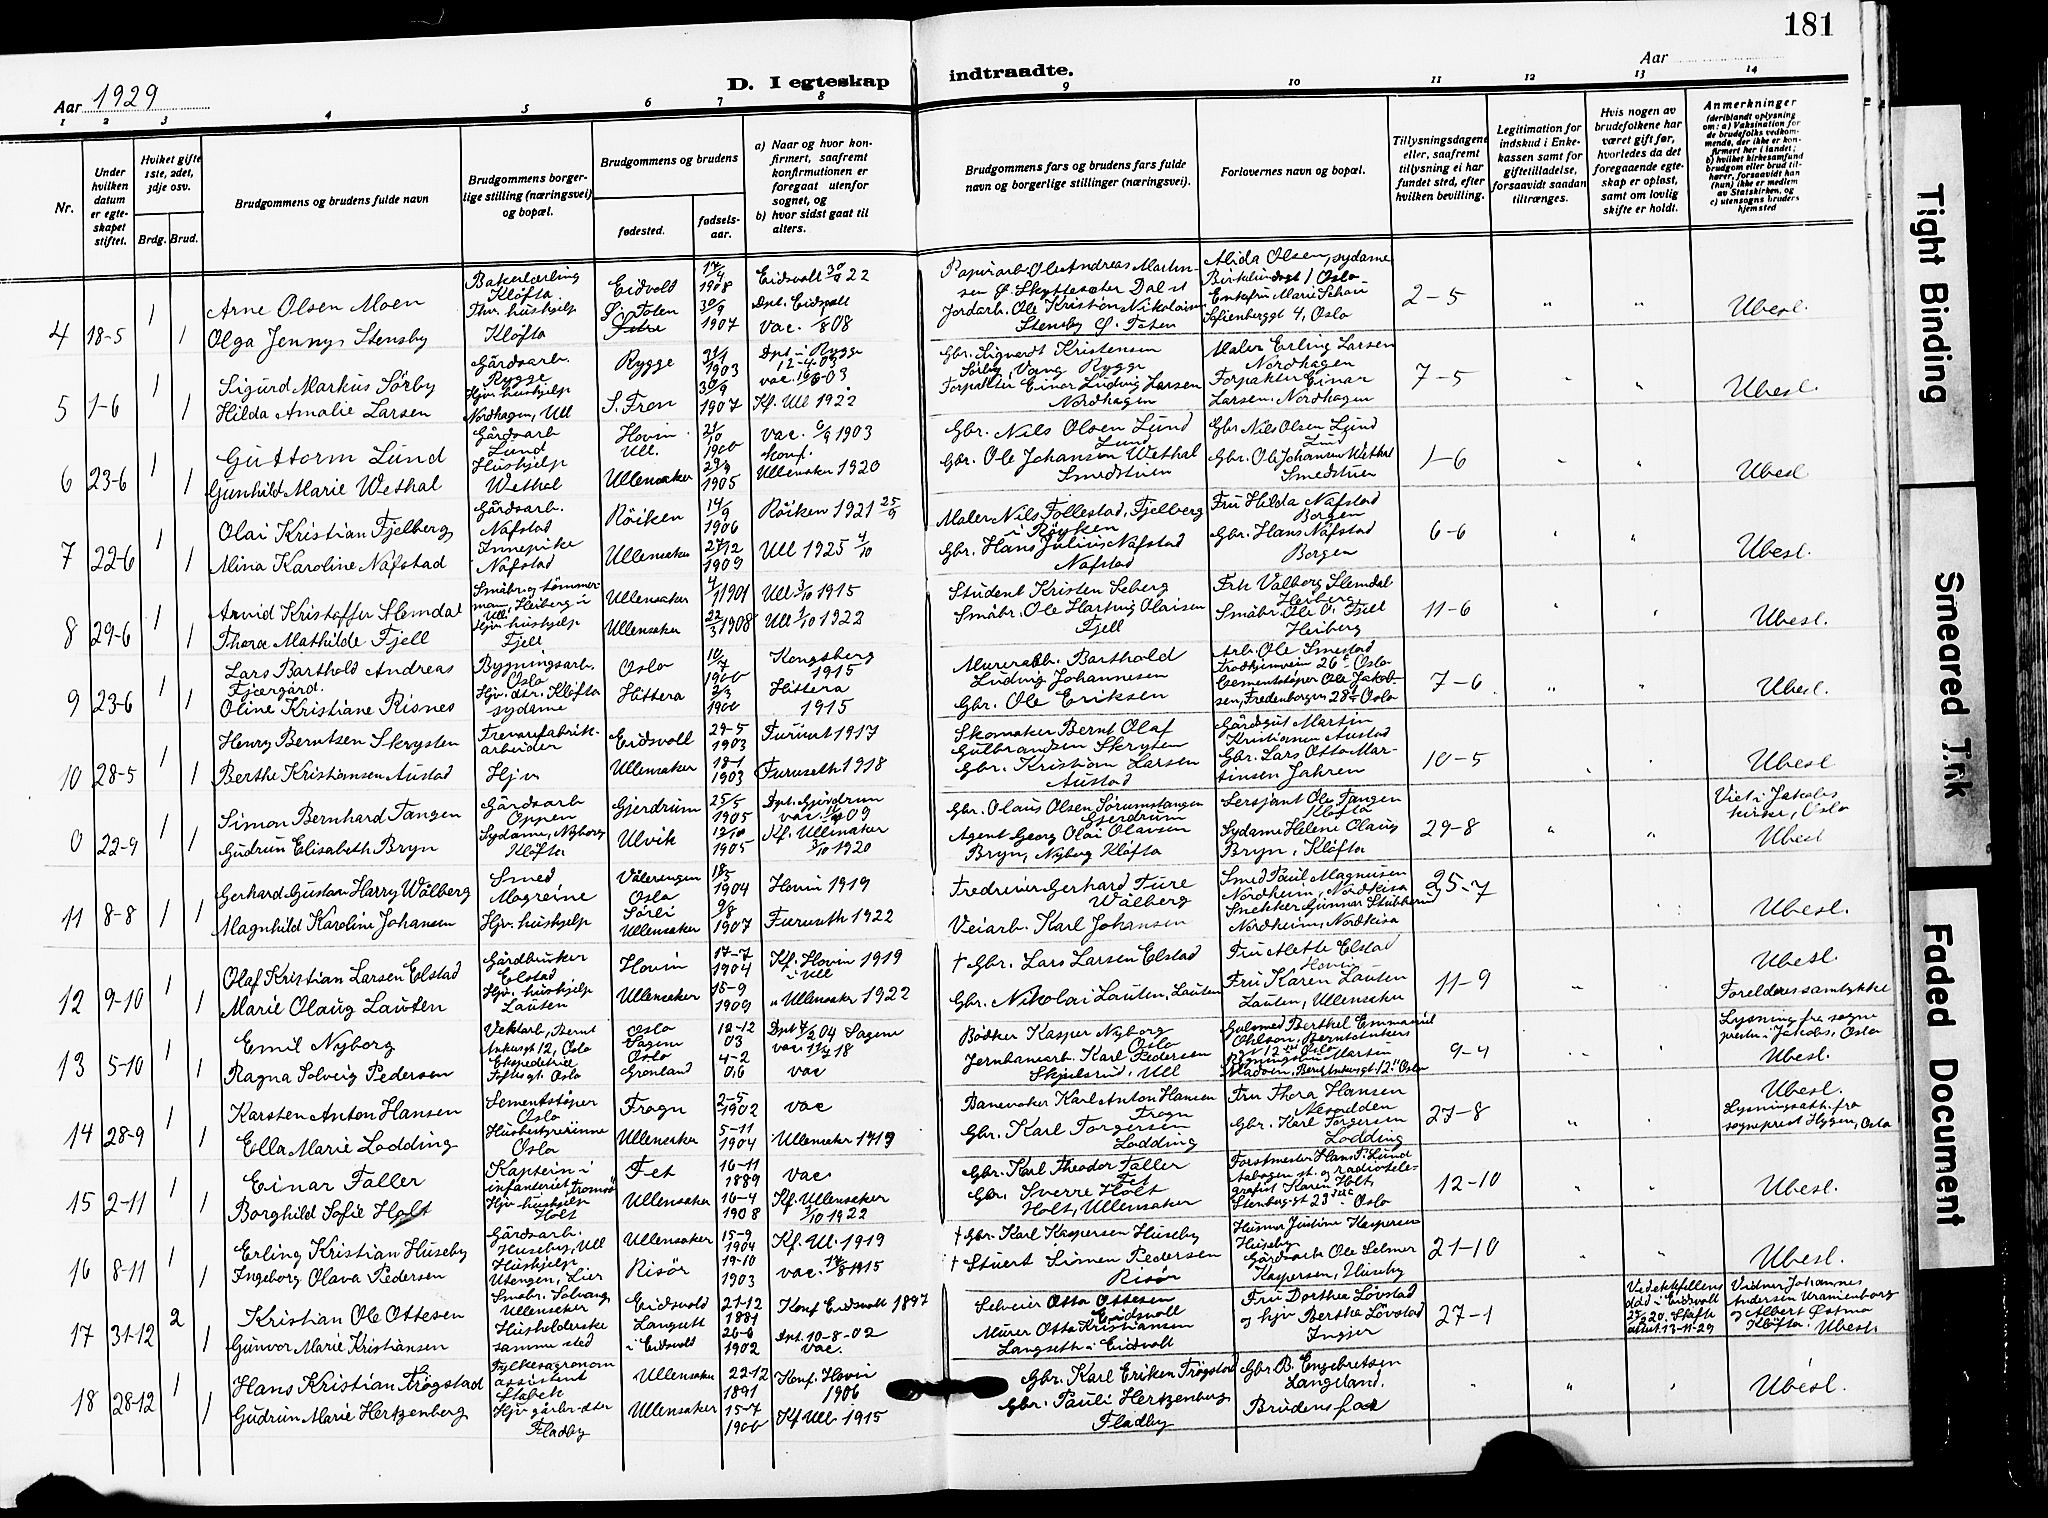 181
Aar 1929
D. I egteskap indtraadte.
Aar
1 2 3 4 5 6 7 8 9 10 11 12 13 14
Nr.
Under hvilken datum er egteskapet stiftet.
Hviket gifte 1ste, 2det, 3dje osv.
Brdg. Brud.
Brudgommens og brudens fulde navn
Brudgommens borgerlige stilling (næringsvei) og bopæl.
Brudgommens og brudens
fødested.
fødselsaar.
a) Naar og hvor konfirmert, saafremt konfirmationen er foregaat utenfor sognet, og
b) hvor sidst gaat til alters.
Brudgommens fars og brudens fars fulde navn og borgerlige stillinger (næringsvei).
Forlovernes navn og bopæl.
Tillysningsdagene eller, saafremt tillysning ei har fundet sted, efter hvilken bevilling.
Legitimation for indskud i Enkekassen samt for giftetilladelse, forsaavidt saadan tiltrænges.
Hvis nogen av brudefolkene har været gift før, hvorledes da det foregaaende egteskap er opløst, samt om lovlig skifte er holdt.
Anmerkninger (deriblandt oplysning om: a) Vaksination for de brudefolks vedkommende, der ikke er konfirmert her i landet; b) hvilket kirkesamfund brudgom eller brud tilhører, forsaavidt han (hun) ikke er medlem av Statskirken, og c) utensogns bruders hjemsted
4 18-5 1 Arne Olsen Moen Bakerlærling Kløfta Eidvolt 1908 Eidsvolt 22 Papirarb. Ole Andreas Martinsen Alida Olsen, sydame 2-5 Ubesl.
1 Olga Jenny Stensby Thv. hushjelp Kløfta Ø. Toten 30/9 1907 Dpt. Eidsvolt vac. 08 Jordarb. Ole Kristian Nikolaisen Stensby Ø. Toten Enkefru Marie Schou Sofienberggt 4, Oslo
5 1-6 1 Sigurd Markus Sörby Gårdsarb. Rygge Rygge 1903 Dpt. i Rygge 12-4-03 Gbr. Sigvardt Kristensen Sörby, Vang Rygge Maler Erling Larsen Nordhagen 7-5 Ubesl.
1 Hilda Amalie Larsen Hjv. hushjelp Nordhagen, Ull S. Fron 1907 Kf. Ull 1922 Forpakter Einar Ludvig Larsen Nordhagen Forpakter Einar Larsen. Nordhagen
6 23-6 1 Guttorm Lund Gårdsarb Lund Hovin Ull. 21/10 1900 vac. 1903 Gbr. Nils Olsen Lund Lund Gbr Nils Olsen Lund Lund 1-6 Ubesl
1 Gunhild Marie Wethal Hushjelp Wethal Ullensaker 1905 Konf. Ullensaker 1920 Gbr. Ole Johansen Wethal Smedstuen Gbr. Ole Johansen Wethal Smedstuen
7 22-6 1 Olai Kristian Fjelberg Gårdsarb. Nafstad Röiken 14/9 1906 Röiken 1921 25/9 Maler Nils Follestad, Fjelberg i Röyken Fru Hilda Nafstad Borgen 6-6 Ubesl.
1 Alina Karoline Nafstad Innepike Nafstad Ullensaker 27/12 1909 Ull 1925 4/10 Gbr. Hans Julius Nafstad Nafstad Gbr. Hans Nafstad Borgen
8 29-6 1 Arvid Kristoffer Slemdal Småbr. og tömmerman, Heiberg i Ull Ullensaker 1901 Ull 3/10 1915 Student Kristen Seberg Frk Valborg Slemdal Heiberg 11-6 Ubesl.
1 Thora Mathilde Fjell Hjv. hushjelp Fjell Ullensaker 22/3 1908 Ull 1/10 1922 Småbr. Ole Hartvig Olaisen Fjell Småbr. Ole O. Fjell Heiberg
9 23-6 1 Lars Barthold Andreas Fjærgård. Bygningsarb. Oslo Oslo 10/7 1900 Kongsberg 1915 Murerarb. Barthold Ludvig Johannesen Arb. Ole Smestad 7-6 Ubesl.
1 Oline Kristiane Risnes Hjv. dtr. Kløfta sydame Hittera 1900 Hittera 1915 Gbr. Ole Eriksen Cementstöper Ole Jakobsen, Fredenborgvn 28 Oslo
10 28-5 1 Henry Berntsen Skrysten Trevarefabrikarbeider Eidsvoll 29-5 1903 Furuset 1917 Skomaker Bernt Olaf Gulbrandsen Skrysten Gårdgut Martin Kristiansen Austad 10-5 Ubesl
1 Berthe Kristiansen Austad Hjv Ullensaker 18-1 1903 Furuseth 1918 Gbr. Kristian Larsen Austad Gbr. Lars Otto Martinsen Jahren
0 22-9 1 Simon Bernhard Tangen Gårdsarb Oppen Gjerdrum 25/5 1905 Dpt. Gjerdrum vac. 09 Gbr. Olaus Olsen Sørumstangen Gjerdrum Sersjant Ole Tangen Kløfta 29-8 Viet i Jakobs kirke, Oslo
1 Gudrun Elisabeth Bryn Sydame, Nyborg Kløfta Ulvik 12/10 1905 Kf. Ullensaker 3/10 1920 Agent Georg Olai Olavsen Bryn, Nyborg Kløfta Sydame Helene Olaug Bryn, Kløfta Ubesl
11 8-8 1 Gerhard Gustav Harry Wålberg Smed Mogreine Vålerengen Oslo 18/5 1904 Hovin 1919 Fredriver Gerhard Ture Wålberg Smed Paul Magnusen Nordheim, Nordkisa 25-7 Ubesl.
1 Magnhild Karoline Johansen Hjv. hushjelp Sörli Ullensaker 9/8 1907 Furuseth 1922 Veiarb. Karl Johansen Snekker Gunnar Stubberud Nordheim, Nordkisa
12 9-10 1 Olaf Kristian Larsen Elstad Gårdbruker Elstad Hovin 17-7 1904 Kf. Hovin 1919 i Ull † Gbr. Lars Larsen Elstad Fru Alette Elstad Hovin 11-9 Ubesl.
1 Marie Olaug Lauten Hjv. hushjelp Lauten Ullensaker 15-9 1909 „ Ullensaker 1922 Gbr. Nikolai Lauten, Lauten Fru Karen Lauten Lauten, Ullensaker Foreldresamtykke
13 5-10 1 Emil Nyborg Oslo Sagene 12-12 03 Dpt 04 Sagene vac 18 Bödker Kasper Nyborg Oslo Gulsmed Berthel Emmanuel Ohlson 9-4 Lysning fra sogneprestn. i Jakobs, Oslo
1 Ragna Solveig Pedersen Ekspeditrise Toftesgt. Oslo Oslo Grönland 4-2 06 vac Jernbanearb. Karl Pedersen Skjelsrud, Ull Ubesl.
14 28-9 1 Karsten Anton Hansen Sementstøper Oslo Frogn 2-5 1902 vac Banevokter Karl Anton Hansen Frogn Fru Thora Hansen Nesodden 27-8 Ubesl.
1 Ella Marie Lodding Husbestyrerinne Oslo Ullensaker 5-11 1904 Ullensaker 1919 Gbr. Karl Torgersen Lodding Gbr. Karl Torgersen Lodding Lysningsatt. fra sogneprest Hygen, Oslo
15 2-11 1 Einar Faller Kaptein i infanteriet, Tromsö Fet 16-11 1889 vac. Gbr. Karl Theodor Faller Fet Forstmester Hans P. Lund 12-10 Ubesl.
1 Borghild Sofie Holt Hjv hushjelp Holt Ullensaker 16-4 1908 Kf. Ullensaker 1/10 1922 Gbr. Sverre Holt Holt, Ullensaker radiotelegrafist Karen Holt, Stenbergt 23 Oslo
16 8-11 1 Erling Kristian Huseby Gårdsarb. Huseby, Ull Ullensaker 15-9 1904 Kf. Ull. 1919 † Gbr. Karl Kaspersen Huseby Husmor Justine Kaspersen Huseby 21-10 Ubesl.
1 Ingeborg Olava Pedersen Hushjelp Utengen, Lier Risör 19-10 1903 vac. 1915 † Stuert Simen Pedersen Risör Gårdsarb Ole Selmer Kaspersen, Huseby
17 31-12 2 Kristian Ole Ottesen Småbr. Solvang Ullensaker Eidsvold 21-12 1881 Konf Eidsvolt 1897 Selveier Otto Ottesen Eidsvoll Fru Dorthea Lövstad 27-1 Ved ektefellens död i Eidsvoll Skifte 13-11-29 Vidner Johannes Andersen Uranienborg
1 Gunvor Marie Kristiansen Husholderske samme sted Langset i Eidsvolt 26-6 1902 Dpt. 10-8-02 vac. Murer Otto Kristiansen Langseth i Eidsvolt og hjv Berthe Lövstad Ingjer og Albert Østmo Kløfta. Ubesl.
18 28-12 1 Hans Kristian Trøgstad Fylkesagronom assistent Stabek Ullensaker 22-12 1891 Konf. Hovin 1906 Gbr. Karl Eriken Trøgstad Gbr. B. Engebretsen Langeland. Ubesl.
1 Gudrun Marie Hertzenberg Hjv gårbr.dter Fladby Ullensaker 15-7 1900 Kf Ull 1915 Gbr. Pauli Hertzenberg Fladby Brudens far
Tight Binding
Smeared Ink
Faded Document